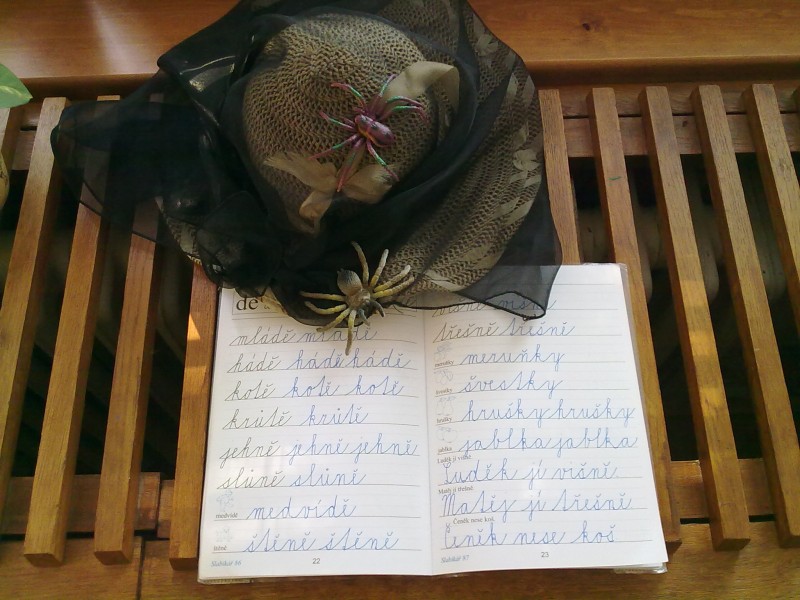 dě
mládě mládě
hádě hádě hádě
kotě kotě kotě
krůtě krůtě
jehně jehně jehně
slůně slůně
medvídě medvídě
štěně štěně štěně
Slabikář 66
22
višně višně
třešně třešně
meruňky meruňky
švestky švestky
hrušky hrušky hrušky
jablka jablka jablka
Luděk jí višně.
Luděk jí višně.
Matěj jí třešně.
Matěj jí třešně.
Čeněk nese koš.
Čeněk nese koš
Slabikář 67
23